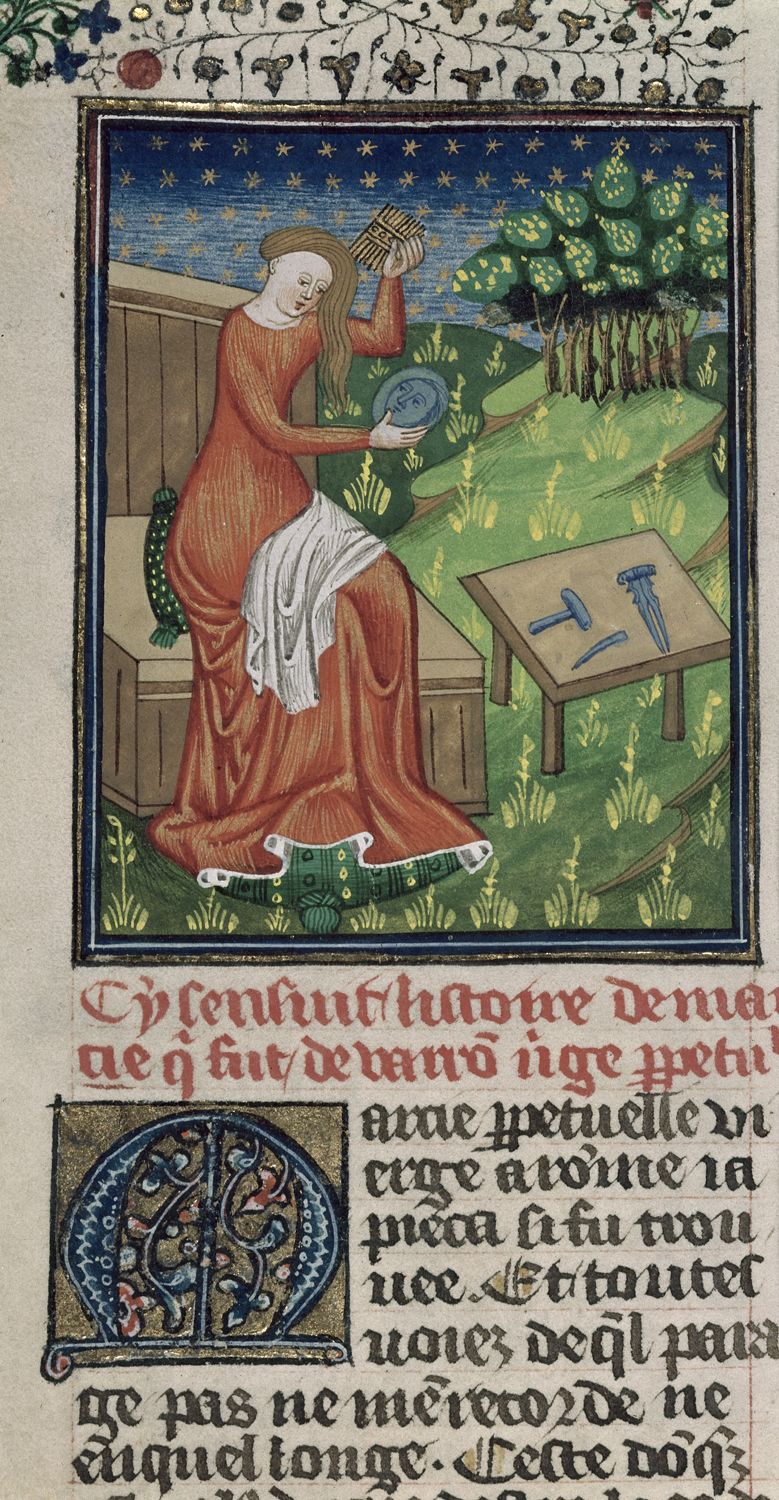 Cy sensuit listoire de mar
cie q̃ fut de varrõ v̾ge ꝑpetu
Marcie ꝑpetuelle vi
erge a rõme ia
pieca si fu trou
uee. Et toutes
uoiez de q̃l para
ge pas ne mẽ recorde ne
en quel longe. Ceste dõq̃z